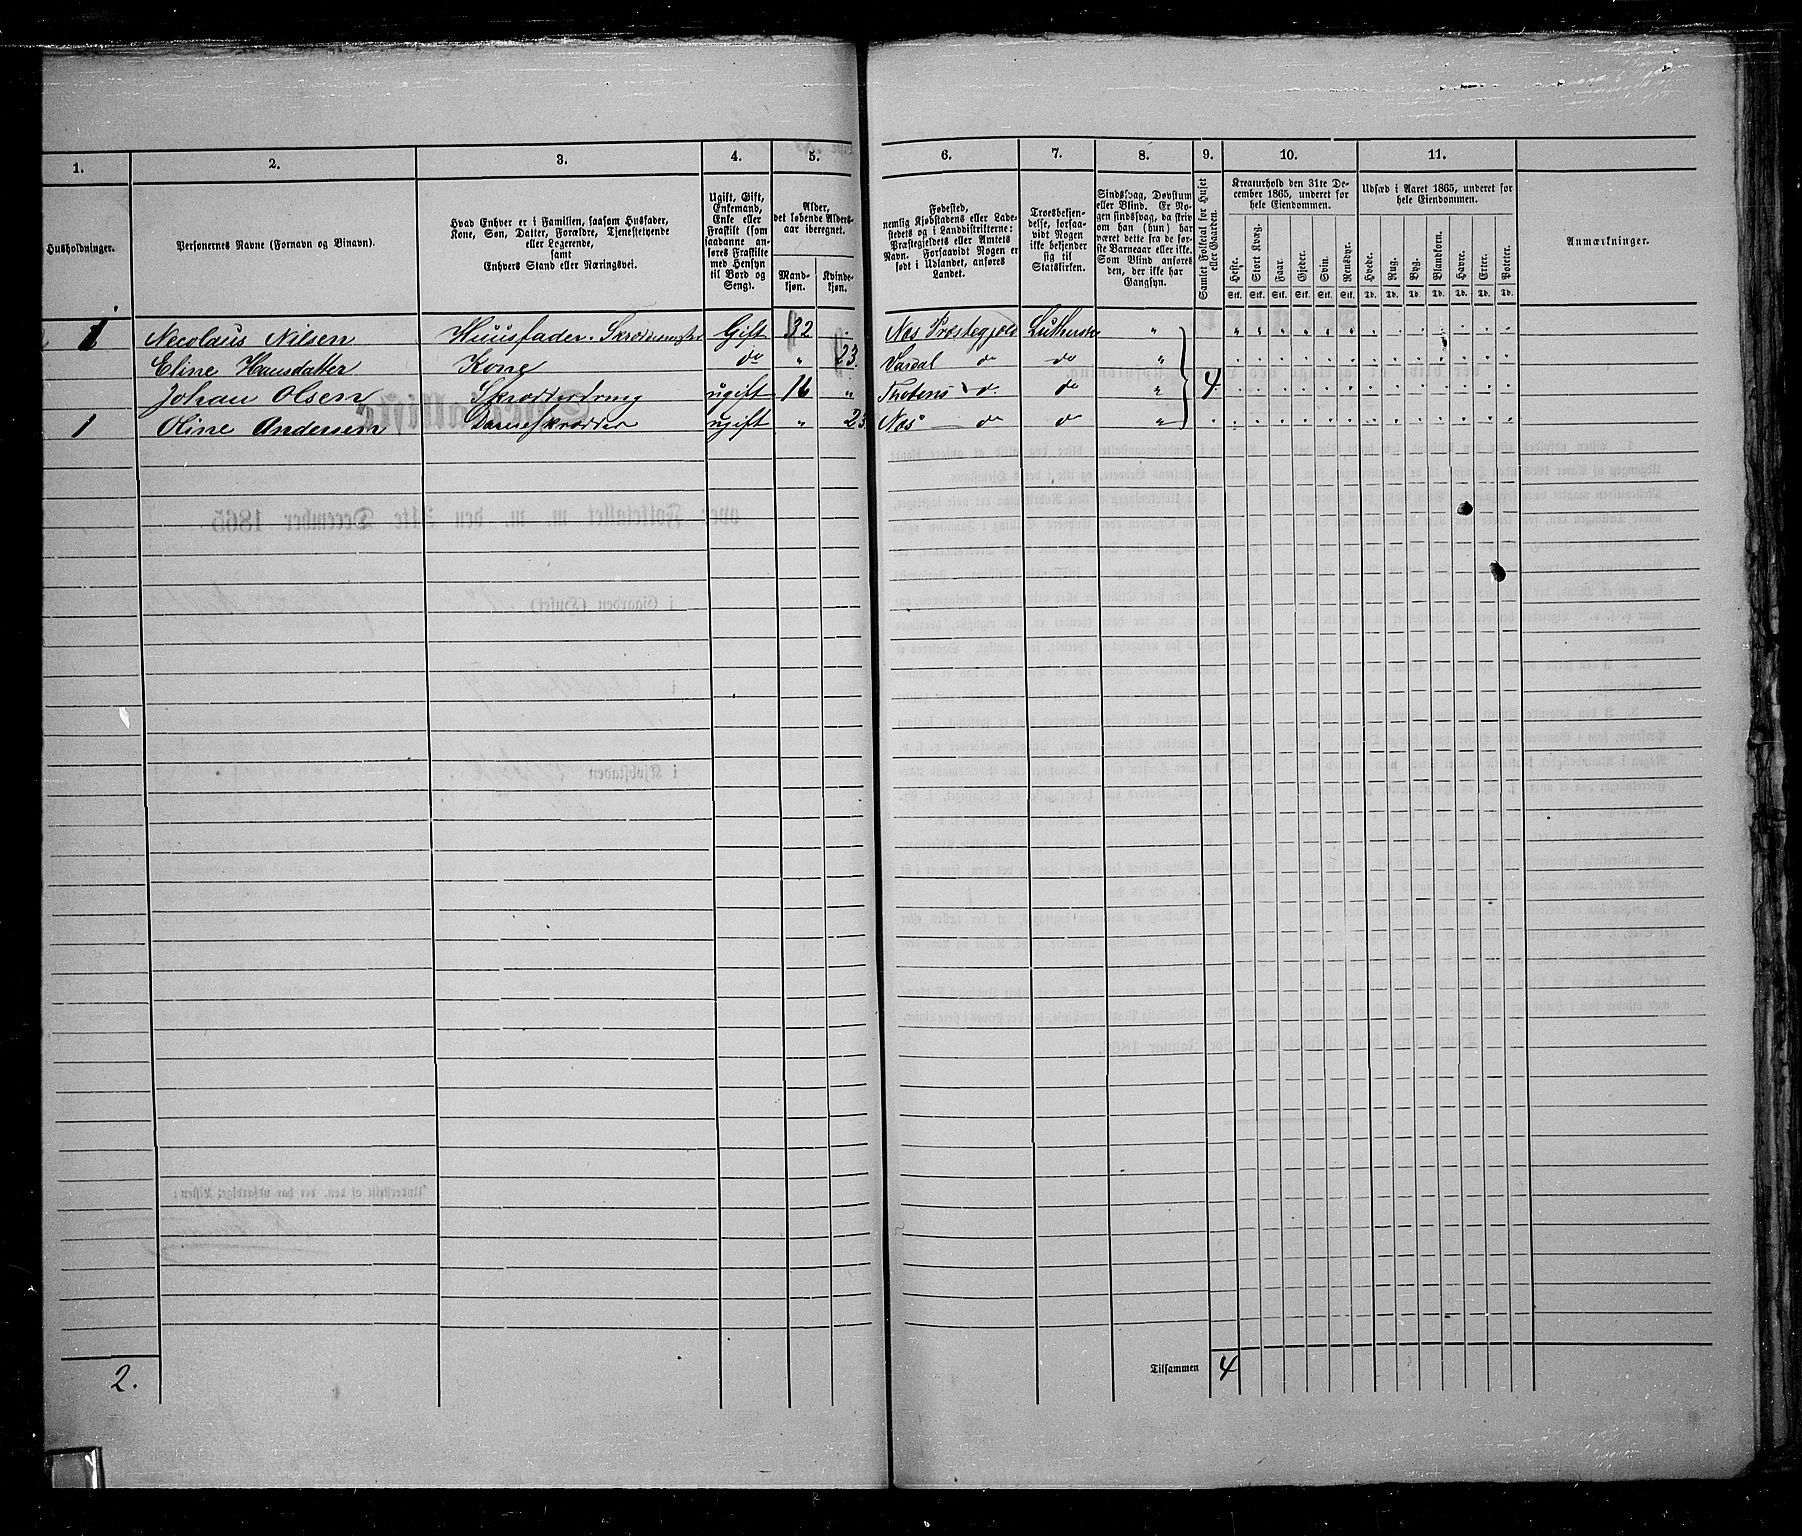 1.
2.
3.
4.
5.
6.
7.
8.
9.
10.
11.
Husholdninger.
Personernes Navne (Fornavn og Binavn).
Hvad Enhver er i Familien, saasom Husfader,
Kone, Søn, Datter, Forældre, Tjenestetyende
eller Logerende,
samt
Enhvers Stand eller Næringsvei.
Ugift, Gift,
Enkemand,
Enke eller
Fraskilt (som
saadanne an-
føres Fraskilte
med Hensyn
til Bord og
Seng).
Alder,
det løbende Alders-
aar iberegnet.
Mand-
kjøn.
Kvinde-
kjøn.
Fødested,
nemlig Kjøbstadens eller Lade-
stedets og i Landdistrikterne:
Præstegjeldets eller Amtets
Navn. Forsaavidt Nogen er
født i Udlandet, anføres
Landet.
Troesbekjen-
delse, forsaa-
vidt Nogen
ikke bekjender
sig til
Statskirken.
Sindssvag, Døvstum
eller Blind. Er No-
gen sindssvag, da skriv
om han (hun) har
været dette fra de før-
ste Barneaar eller ikke.
Som Blind anføres
den, der ikke har
Gangsyn.
Samlet Folketal for Huset
eller Gaarden.
Kreaturhold den 31te De-
cember 1865, underet for
hele Eiendommen.
Heste. Stort Kvæg. Faar. Gjeder. Svin. Rensdyr.
Stk. Stk. Stk. Stk. Stk. Stk.
Udsæd i Aaret 1865, underet for
hele Eiendommen.
Hvede. Rug. Byg. Blandkorn. Havre. Erter. Poteter.
Td. Td. Td. Td. Td. Td. Td.
Anmærkninger.
1 Necolaus Nilsen Huusfader. Gift 32 Næs Præstegjeld "
Eline Hansdatter Kone do " 23. do do "
Johan Olsen ugift 16 " do do " 4
1 Oline Andersen Dameskrædder ugift " 23 Næs do do "
2.
Tilsammen 4